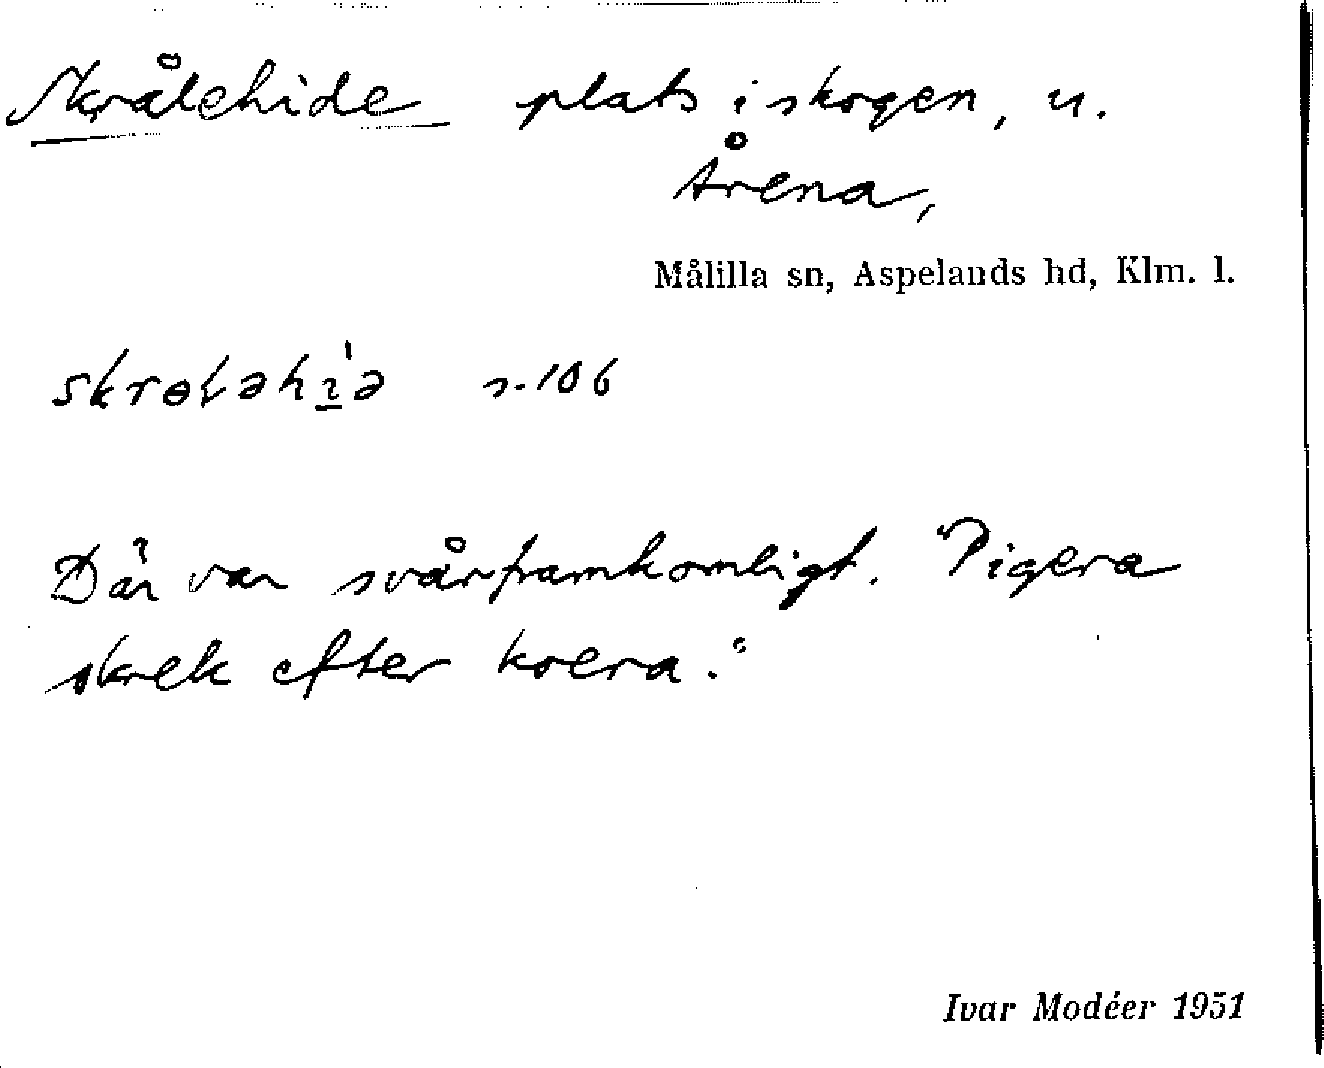 Skrålehide plats i skogen, u.
Årena,
Målilla sn, Aspelands hd, Klm. l.
s. 106
Där var svårframkomligt. "Pigera
skrek efter koera."
Ivar Modéer 1951